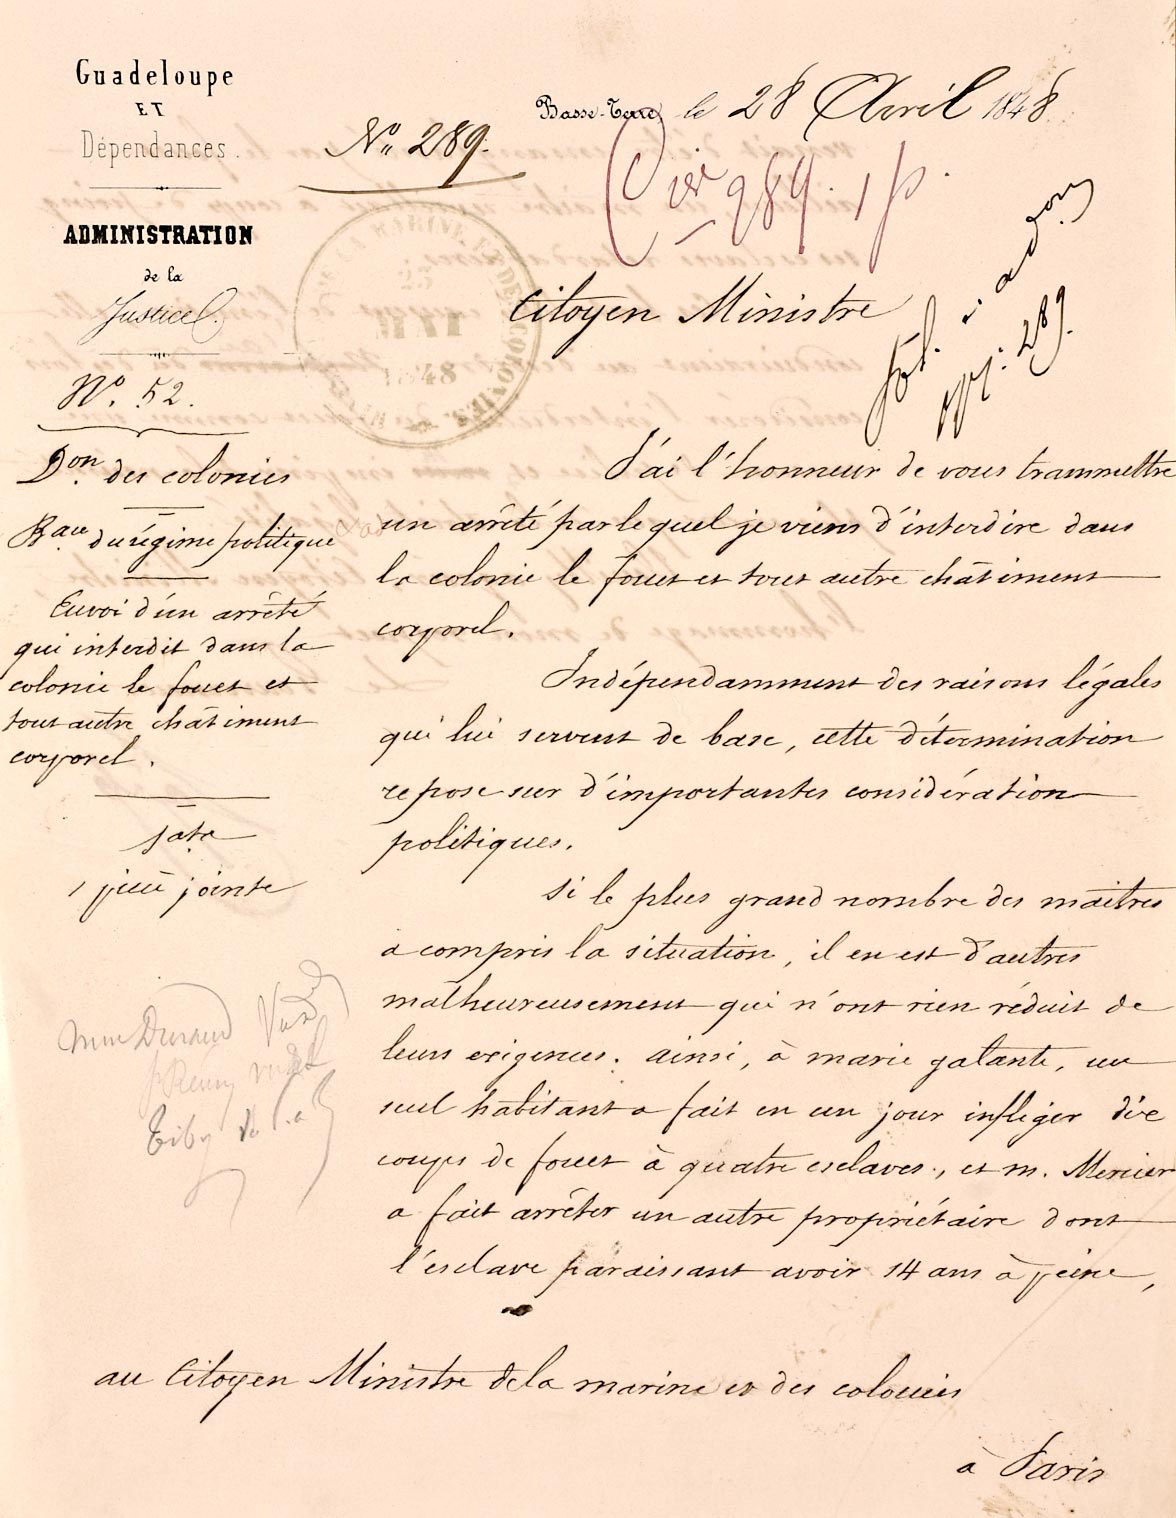 Guadeloupe
ET
Dépendances.
ADMINISTRATION
de la
Justice.
N° 52.
Don des colonies
Bau du régime politique
Envoi d'un arrêté
qui interdit dans la
colonie le fouet et
tout autre châtiment
corporel.
1 pièce jointe
N° 289.
Basse-Terre, le 28 Avril 1848.
289. 1 p.
MINISTÈRE DE LA MARINE ET DES COLONIES
23
MAI
1848
289.
Citoyen Ministre
J'ai l'honneur de vous transmettre
un arrêté par lequel je viens d'interdire dans
la colonie le fouet et tout autre châtiment
corporel.
Indépendamment des raisons légales
qui lui servent de base, cette détermination
repose sur d'importantes considération
politiques.
Si le plus grand nombre des maîtres
a compris la situation, il en est d'autres
malheureusement qui n'ont rien réduit de
leurs exigences. ainsi, à marie galante, un
seul habitant a fait en un jour infliger dix
coups de fouet à quatre esclaves, et m. Mercier
a fait arrêter un autre propriétaire dont
l'esclave paraissant avoir 14 ans à peine,
Durand
Rémy
au Citoyen Ministre de la marine et des colonies
à Paris